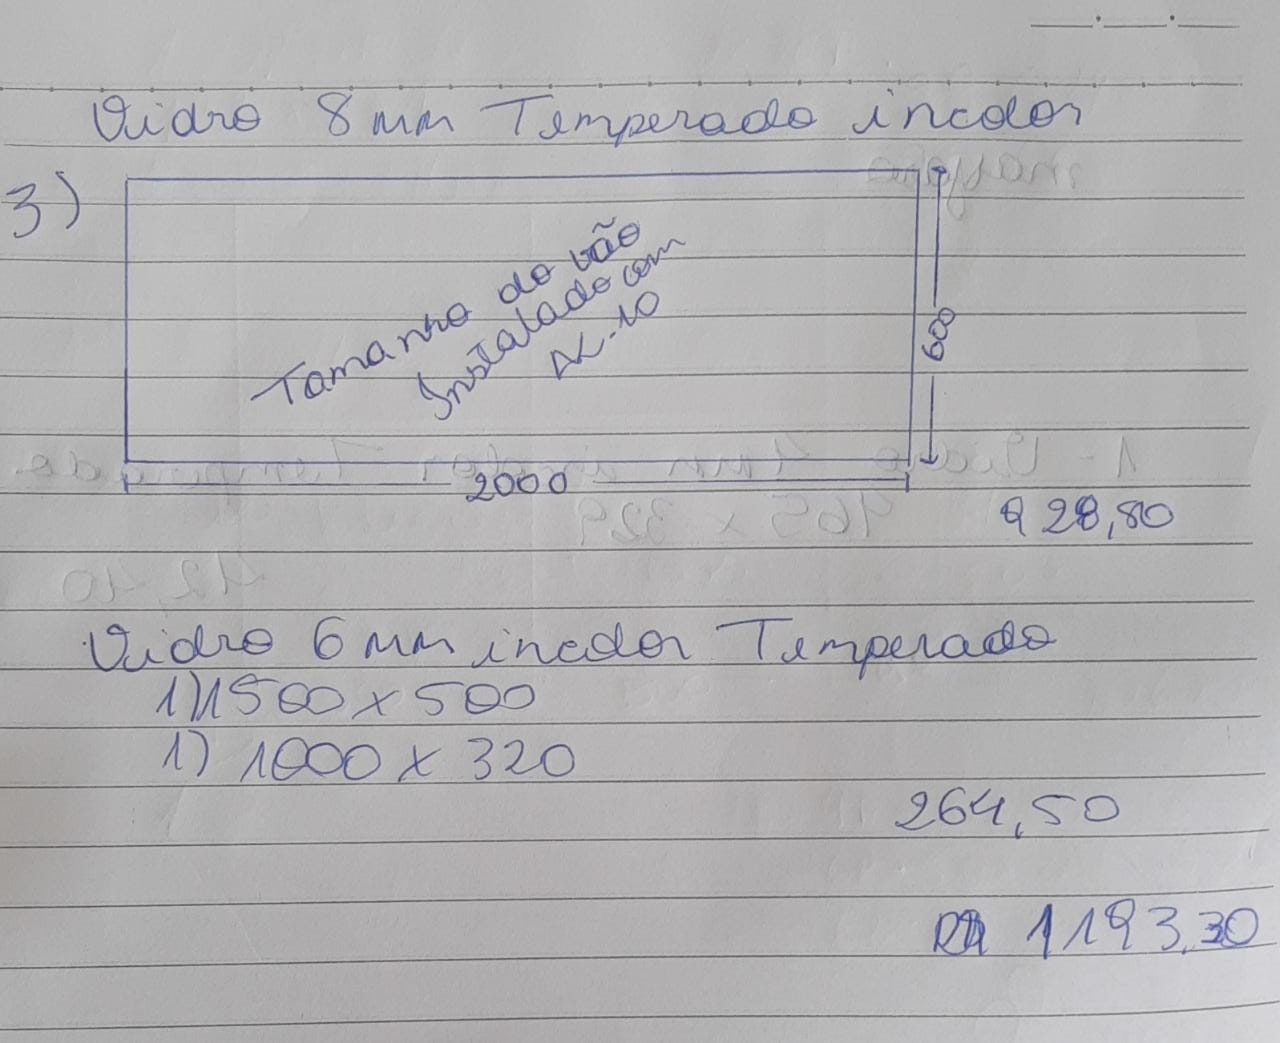 Vidro 8mm Temperado incolor
3)
Tamanho do vão
Instalado com
AL-10
600
2000
928,80
Vidro 6mm incolor Temperado
1) 1500 x 500
1) 1000 x 320
264,50
1193,30